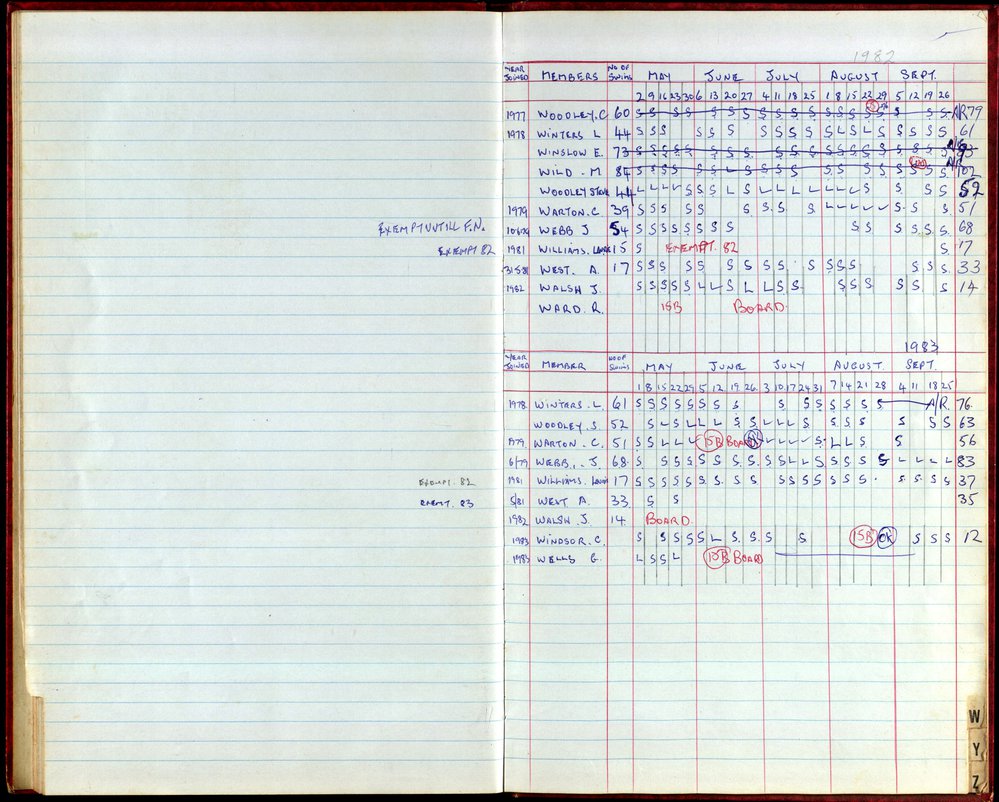 1982
YEAR JOINED MEMBERS NO OF SWIMS MAY JUNE JULY AUGUST SEPT.
2 9 16 23 30 6 13 20 27 4 11 18 25 1 8 15 22 29 5 12 19 26
1977 WOODLEY. C 60 S S S S S S S S S S S S S S S S S S S S A/R 79
1978 WINTERS L 44 S S S S S S S S S S S L S L S S S S S 61
WINSLOW E. 73 S S S S S S S S S S S S S S S S S S S S S
WILD. M 84 S S S S S S S L S S S S S S S S S S S S 102
WOODLEY STEVE 44 L L L L S S S L S L L L L L L L S S S S 52
1979 WARTON. C. 39 S S S S S S S S S L L L L S S S 51
EXEMPT UNTILL F.N. WEBB J 54 S S S S S S S S S S S S S S S 68
EXEMPT 82 1981 WILLIAMS. 15 S EXEMPT. 82 S. 17
WEST. A. 17 S S S S S S S S S S S S S S S S S 33
1982 WALSH J. S S S S S L L S L L S S S S S S S S 14
WARD. R. 15B BOARD.
1983
YEAR JOINED MEMBER NO OF SWIMS MAY JUNE JULY AUGUST. SEPT.
1 8 15 22 29 5 12 19 26 3 10 17 24 31 7 14 21 28 4 11 18 25
1978 WINTERS. L. 61 S S S S S S S S S S S S S S S A/R. 76
WOODLEY. S. 52 S L S L L S S L L L S S S S S S S 63
1979. WARTON. C. 51 S S L L L 15B BOARD OK L L L L S L L S S 56
6/79 WEBB.. J. 68 S S S S S S S S S S S L L S S S S S L L L L 83
EXEMPT. 82 1981 WILLIAMS. 17 S S S S S S S S S S S S S S S S S S S S 37
EXEMT. 83 5/81 WEST A. 33 S S 35
1982 WALSH. J. 14 BOARD
1983 WINDSOR. C. S S S S S S L S S S S 15B OK S S S 12
1983 WELLS G. L S S L 15B BOARD
W
Y
Z